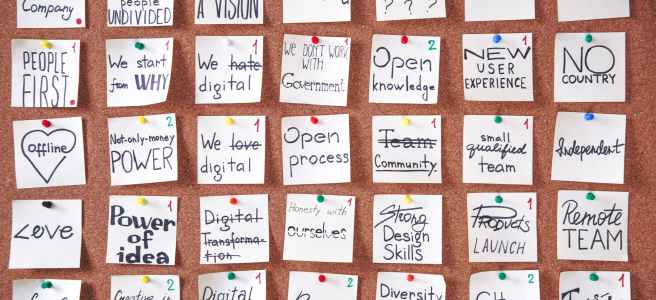 Company
people
UNDIVIDED
A VISION
? ? ?
PEOPLE
FIRST
1
We start
from WHY
1
We hate
digital
1
We DON'T WORK
WITH
Government
2
Open
knowledge
1
NEW
USER
EXPERIENCE
NO
COUNTRY
offline
2
Not-only-money
POWER
1
We love
digital
1
Open
process
1
Team
Community
1
small
qualified
team
Independent
Love
Power
of
idea
1
Digital
Transforma-
tion
1
Honesty with
ourselves
Strong
Design
Skills
1
Product
LAUNCH
Remote
TEAM
2
Creative is
1
Digital
1
Diversity
2
1